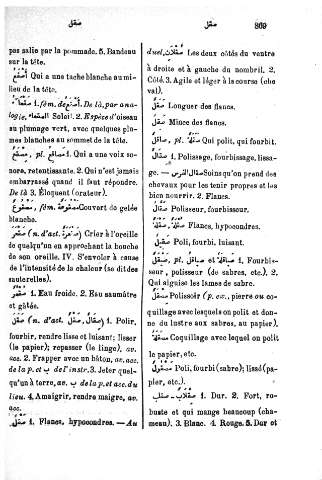 صقل
صقل
869
pas salie par la pommade. 5. Bandeau
sur la tête.
أصقع Qui a une tache blanche au mi-
lieu de la tête.
صقعاء 1. fém. de أصقع. De là, par ana-
logie, الصقعاء Soleil. 2. Espèce d'oiseau
au plumage vert, avec quelques plu-
mes blanches au sommet de la tête.
مصقع, pl. مصاقع 1. Qui a une voix so-
nore, retentissante. 2. Qui n'est jamais
embarrassé quand il faut répondre.
De là 3. Éloquent (orateur).
مصقوع, fém. مصقوعة Couvert de gelée
blanche.
صقعر (n. d'act. صقعرة) Crier à l'oreille
de quelqu'un en approchant la bouche
de son oreille. IV. S'envoler à cause
de l'intensité de la chaleur (se dit des
sauterelles).
1. Eau froide. 2. Eau saumâtre
et gâtée.
صقل (n. d'act. صقل, صقال) 1. Polir,
fourbir, rendre lisse et luisant; lisser
(le papier); repasser (le linge), av.
acc. 2. Frapper avec un bâton, av. acc.
de la p. et ب de l'instr. 3. Jeter quel-
qu'un à terre, av. ب de la p. et acc. du
lieu. 4. Amaigrir, rendre maigre, av.
acc.
صقل 1. Flanes, hypocondres. — Au
duel, صقلان Les deux côtés du ventre
à droite et à gauche du nombril. 2.
Côté. 3. Agile et léger à la course (che
val).
صقل Longueur des flancs.
صقل Mince des flancs.
صاقل, pl. صقلة Qui polit, qui fourbit.
صقال 1. Polissage, fourbissage, lissa-
ge. — صقال الفرس Soins qu'on prend des
chevaux pour les tenir propres et les
bien nourrir. 2. Flancs.
صقال Polisseur, fourbisseur.
صقلة Flancs, hypocondres.
صقيل Poli, fourbi, luisant.
صيقل, pl. صياقل et صياقلة 1. Fourbis-
seur, polisseur (de sabres, etc.). 2.
Qui aiguise les lames de sabre.
مصقلة Polissoir (p. ex., pierre ou co-
quillage avec lesquels on polit et don-
ne du lustre aux sabres, au papier).
Coquillage avec lequel on polit
le papier, etc.
مصقول Poli, fourbi (sabre); lissé (pa-
pier, etc.).
1. Dur. 2. Fort, ro-
buste et qui mange beaucoup (cha-
meau). 3. Blanc. 4. Rouge. 5. Dur et